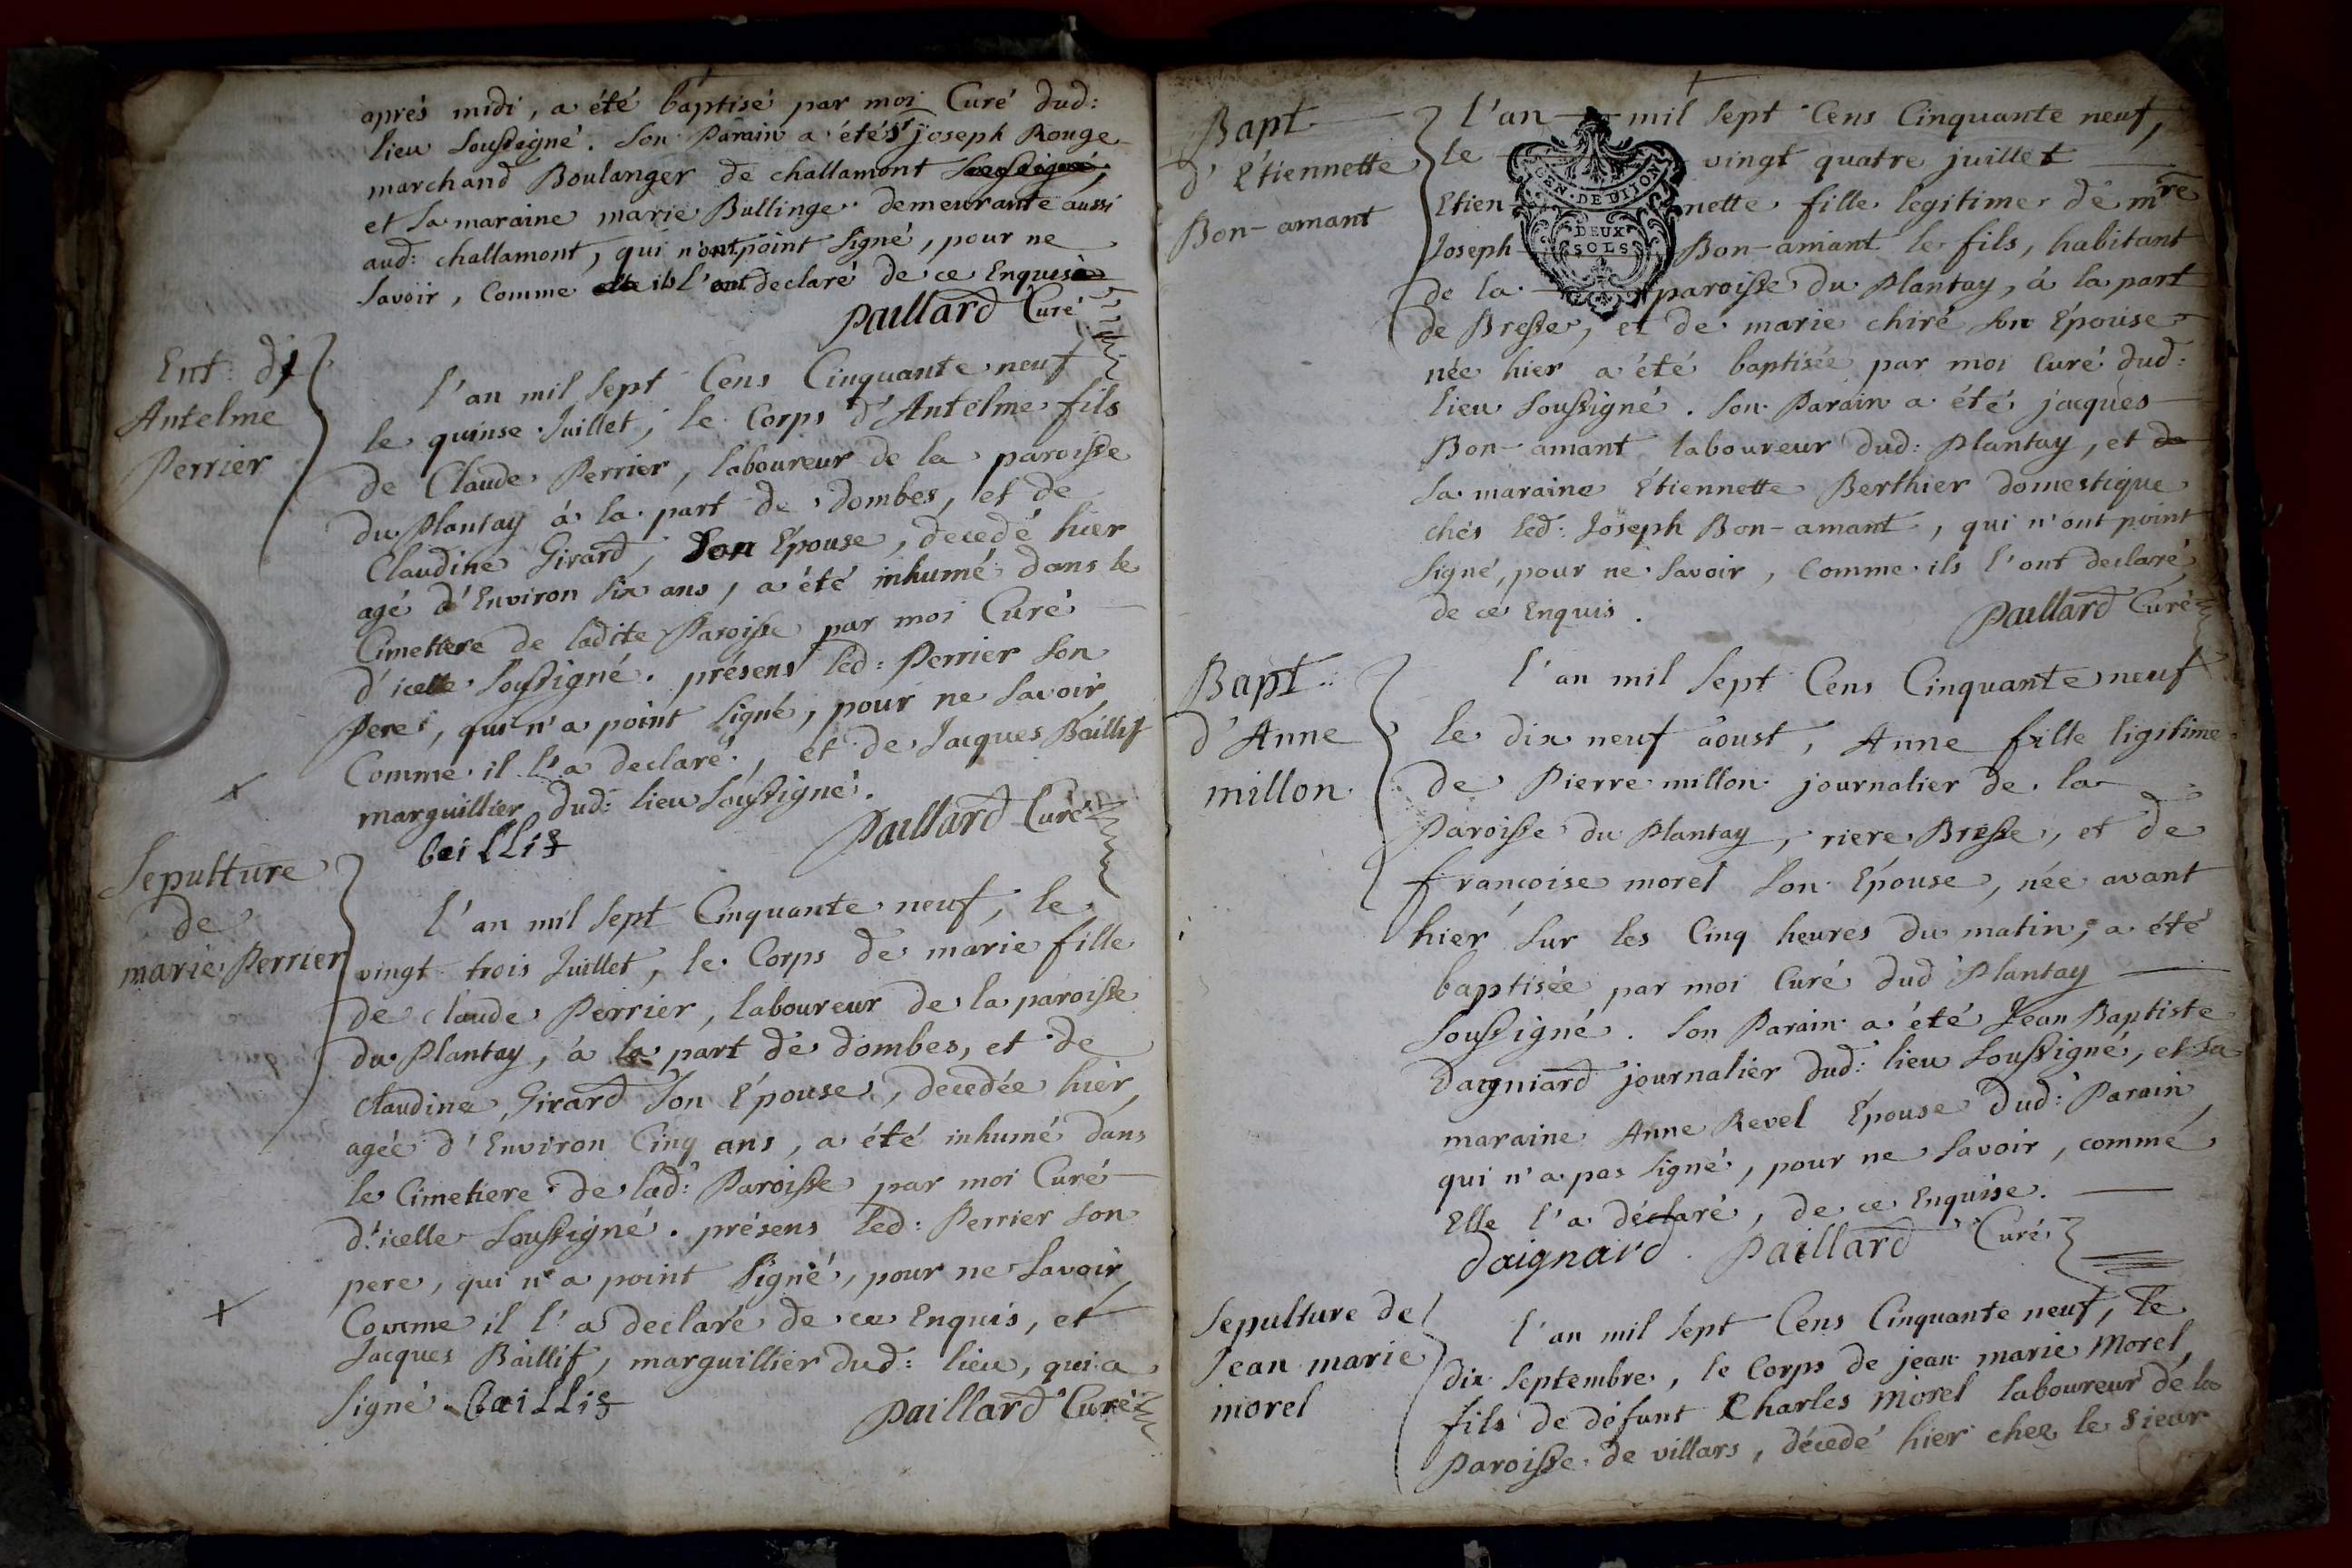 aprés midi, a été baptisé par moi Curé dud:
lieu Soussigné. Son Parain a été Sr joseph Rouge
marchand Boulanger de challamont soussigné,
et Sa maraine marie Bullinge demeurante aussi
aud: challamont, qui n'ont point Signé, pour ne
Savoir, Comme ils l'ont declaré de ce Enquis
Paillard Curé
Ent: d'
Antelme
Perrier
l'an mil Sept Cens Cinquante neuf
le quinse Juillet, le Corps d'Antelme fils
de Claude Perrier, laboureur de la paroisse
du Plantay á la part de dombes, et de
Claudine Girard, Son Épouse, decedé hier
agé d'Environ Six ans, a été inhumé dans le
Cimettere de ladite Paroisse par moi Curé
d'icelle Soussigné. présens led: Perrier Son
Pere, qui n'a point Signé, pour ne Savoir,
Comme il l'a declaré, et de Jacques Baillif
marguillier dud: lieu Soussigné.
baillif
Paillard Curé
Sepulture
de
marie Perrier
l'an mil Sept Cinquante neuf, le
vingt trois Juillet, le Corps de marie fille
de claude Perrier, laboureur de la paroisse
du Plantay, á la part de dombes, et de
claudine Girard Son Épouse, decedée hier,
agée d'Environ Cinq ans, a été inhumé dans
le Cimetiere de lad: Paroisse par moi Curé
d'icelle Soussigné. présens led: Perrier Son
pere, qui n'a point Signé, pour ne Savoir,
Comme il l'a declaré de ce Enquis, et
Jacques Baillif, marguillier dud: lieu, qui a
Signé. baillif
Paillard Curé
Bapt.
d'Étiennette
Bon-amant
l'an mil Sept Cens Cinquante neuf,
le vingt quatre juillet
GEN. DE DIJON
DEUX
SOLS
Etiennette fille légitime de mre
Joseph Bon-amant le fils, habitant
de la paroisse du Plantay, á la part
de Bresse, et de marie chiré Son Épouse
née hier a été baptisée par moi Curé dud:
lieu Soussigné. Son Parain a été jacques
Bon-amant laboureur dud: Plantay, et de
Sa maraine Étiennette Berthier domestique
chés led: Joseph Bon-amant, qui n'ont point
Signé, pour ne Savoir, Comme ils l'ont declaré
de ce Enquis.
Paillard Curé
Bapt:
d'Anne
millon
l'an mil Sept Cens Cinquante neuf
le dix neuf aoust, Anne fille ligitime
de Pierre millon journalier de la
Paroisse du Plantay, riere Bresse, et de
françoise morel Son Épouse, née avant
hier Sur les Cinq heures du matin, a été
baptisée par moi Curé dud Plantay
Soussigné. Son Parain a été Jean Baptiste
Daigniard journalier dud: lieu Soussigné, et Sa
maraine Anne Revel Épouse dud: Parain
qui n'a pas Signé, pour ne Savoir, comme
Elle l'a déclaré, de ce Enquise.
daignard Paillard Curé
Sepulture de
Jean marie
morel
l'an mil Sept Cens Cinquante neuf, le
dix Septembre, le Corps de jean marie Morel,
fils de défunt Charles Morel laboureur de la
Paroisse de villars, décedé hier chez le Sieur